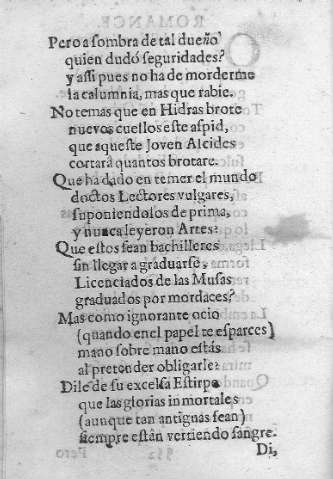 Pero a ſombra de tal dueño
quien dudó ſeguridades?
y aſſi pues no ha de morderme
la calumnia, mas que rabie.
No temas que en Hidras brote
nuevos cuellos eſte aſpid,
que aqueſte Joven Alcides
cortarà quantos brotare.
Que ha dado en temer el mundo
doctos Lectores vulgares,
ſuponiendolos de prima,
y nunca leyeron Artes:
Que eſtos ſean bachilleres
ſin llegar a graduarſe,
Licenciados de las Muſas
graduados por mordaces?
Mas como ignorante ocio
(quando enel papel te eſparces)
mano ſobre mano eſtás
al pretender obligarle:
Dile de ſu excelſa Eſtirpe
que las glorias inmortales
(aunque tan antiguas ſean)
ſiempre eſtàn vertiendo ſangre.
Di,